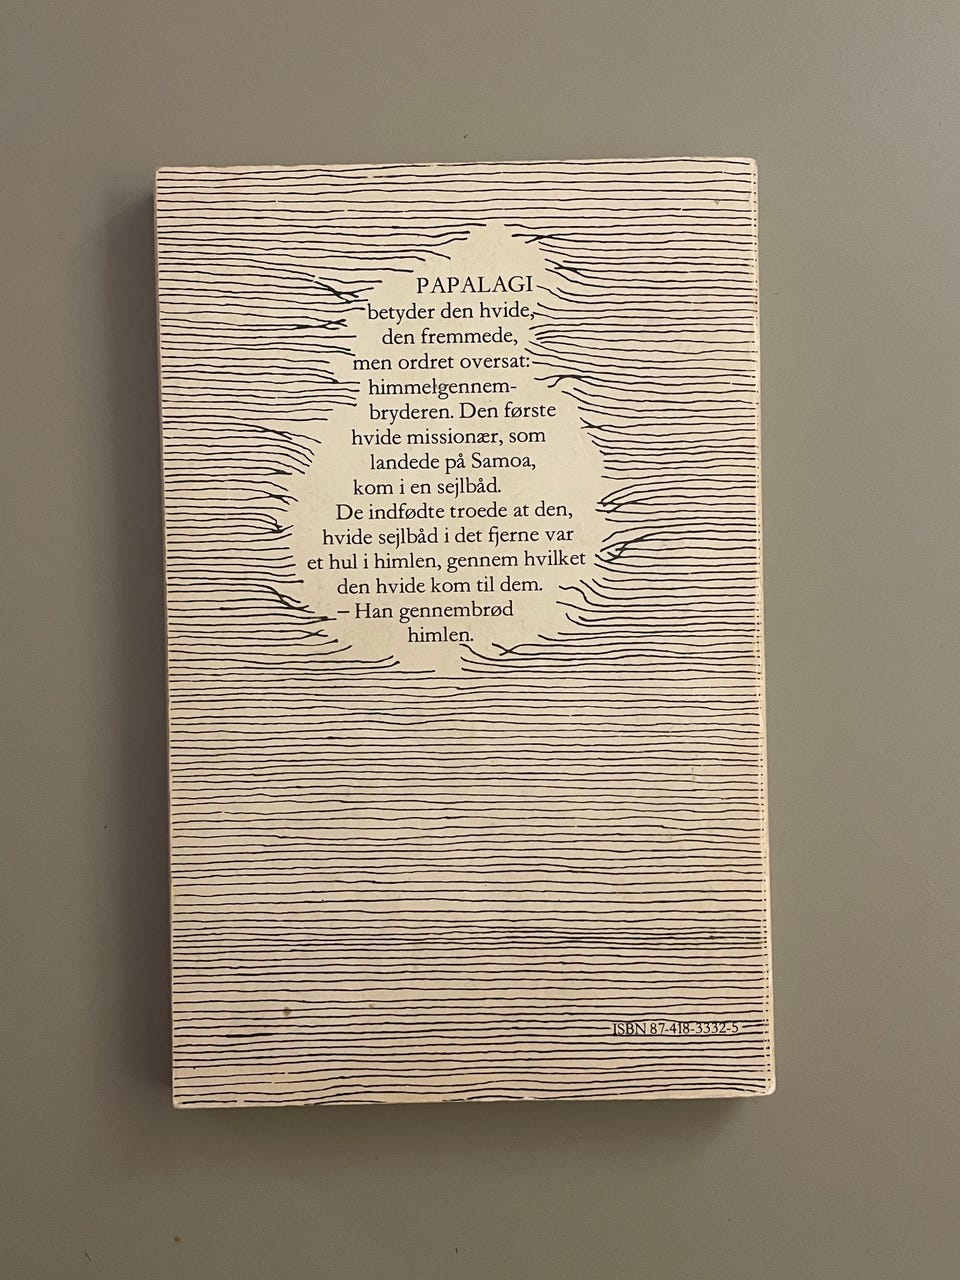 PAPALAGI
betyder den hvide,
den fremmede,
men ordret oversat:
himmelgennem-
bryderen. Den første
hvide missionær, som
landede på Samoa,
kom i en sejlbåd.
De indfødte troede at den,
hvide sejlbåd i det fjerne var
et hul i himlen, gennem hvilket
den hvide kom til dem.
– Han gennembrød
himlen.
ISBN 87-418-3332-5